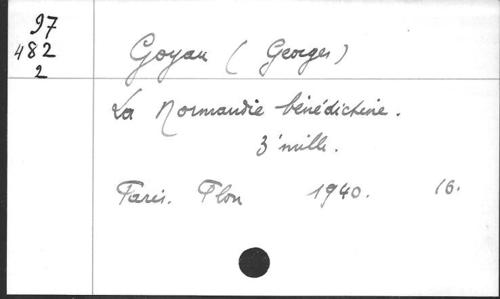 97
482
2
Goyau (Georges)
La Normandie bénédictine.
3e mille.
Paris. Plon 1940. 16.